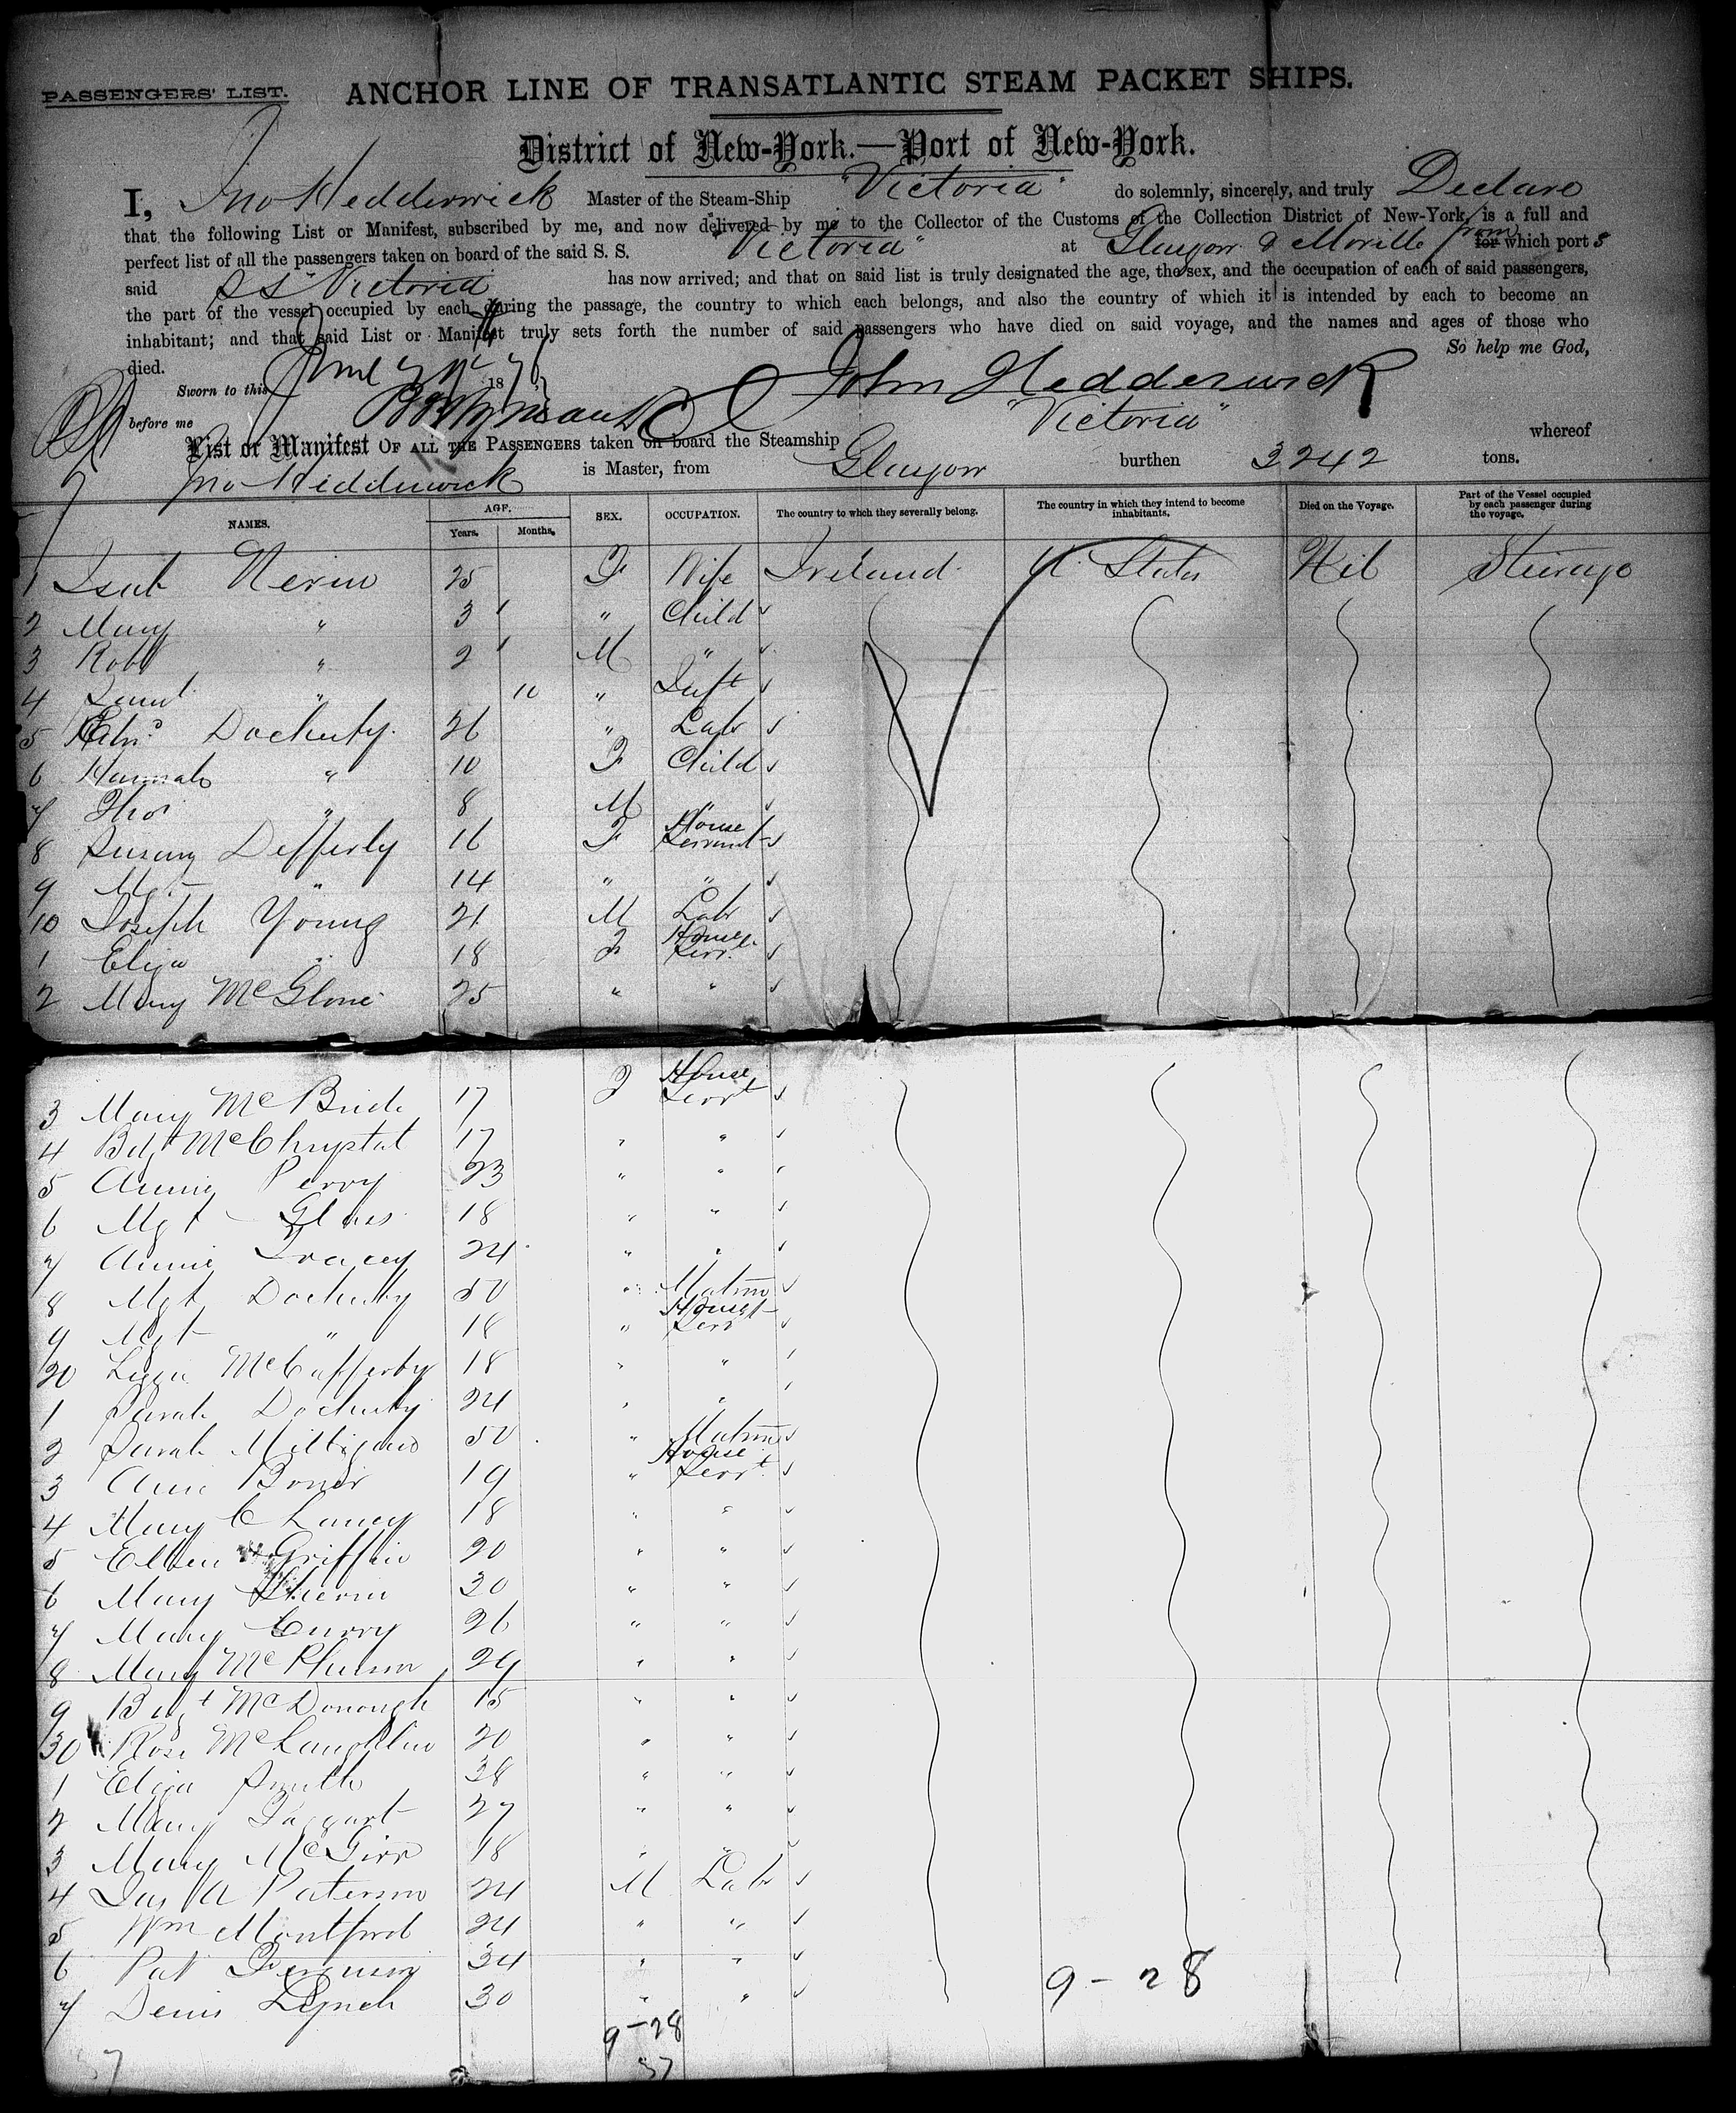 PASSENGERS' LIST. ANCHOR LINE OF TRANSATLANTIC STEAM PACKET SHIPS.
District of New-York.—Port of New-York.
I, Jno Hedderwick Master of the Steam-Ship "Victoria" do solemnly, sincerely, and truly Declare
that the following List or Manifest, subscribed by me, and now delivered by me to the Collector of the Customs of the Collection District of New-York, is a full and
perfect list of all the passengers taken on board of the said S. S. "Victoria" at Glasgow & Moville from for which port s
said SS "Victoria" has now arrived; and that on said list is truly designated the age, the sex, and the occupation of each of said passengers,
the part of the vessel occupied by each during the passage, the country to which each belongs, and also the country of which it is intended by each to become an
inhabitant; and that said List or Manifest truly sets forth the number of said passengers who have died on said voyage, and the names and ages of those who
died. So help me God,
Sworn to this June 1876 John Hedderwick
before me
List or Manifest OF ALL THE PASSENGERS taken on board the Steamship "Victoria" whereof
Jno Hedderwick is Master, from Glasgow burthen 3242 tons.
NAMES. AGE. Years. Months. SEX. OCCUPATION. The country to which they severally belong. The country in which they intend to become inhabitants. Died on the Voyage. Part of the Vessel occupied by each passenger during the voyage.
1 Isab Nevin 25 F Wife Ireland U. States Nil Steerage
2 Mary " 3 " Child
3 Robt " 2 M "
4 Saml " 10 " Inft
5 Docherty 26 " Labr
6 Hannah " 10 F Child
7 Thos " 8 M "
8 Susan Defferty 16 F House Servant
9 Mgt " 14 " "
10 Joseph Young 21 M Labr
1 Eliza " 18 F House Servt
2 Mary McGlone 25 " "
3 Mary McBride 17 F House Servt
4 Bdgt McChrystal 17 " "
5 Annie Perry 23 " "
6 Mgt Glass 18 " "
7 Annie Tracey 24 " "
8 Mgt Docherty 50 " Matron
9 Mgt " 18 " House Servt
20 Lizzie McCafferty 18 " "
1 Sarah Docherty 24 " "
2 Sarah Milligan 50 " Matron
3 Ann Boner 19 " House Servt
4 Mary C Laney 18 " "
5 Ellen Griffin 20 " "
6 Mary 30 " "
7 Mary Curry 26 " "
8 Mary McPherson 29 " "
9 Bdgt McDonough 15 " "
30 Rose McLaughlin 20 " "
1 Eliza Smith 38 " "
2 Mary Taggart 27 " "
3 Mary McGirr 18 " "
4 Jas A Paterson 24 M Labr
5 Wm Montford 24 " "
6 Pat Ferguson 34 " "
7 Denis Lynch 30 " "
9-28
9-28
37
37